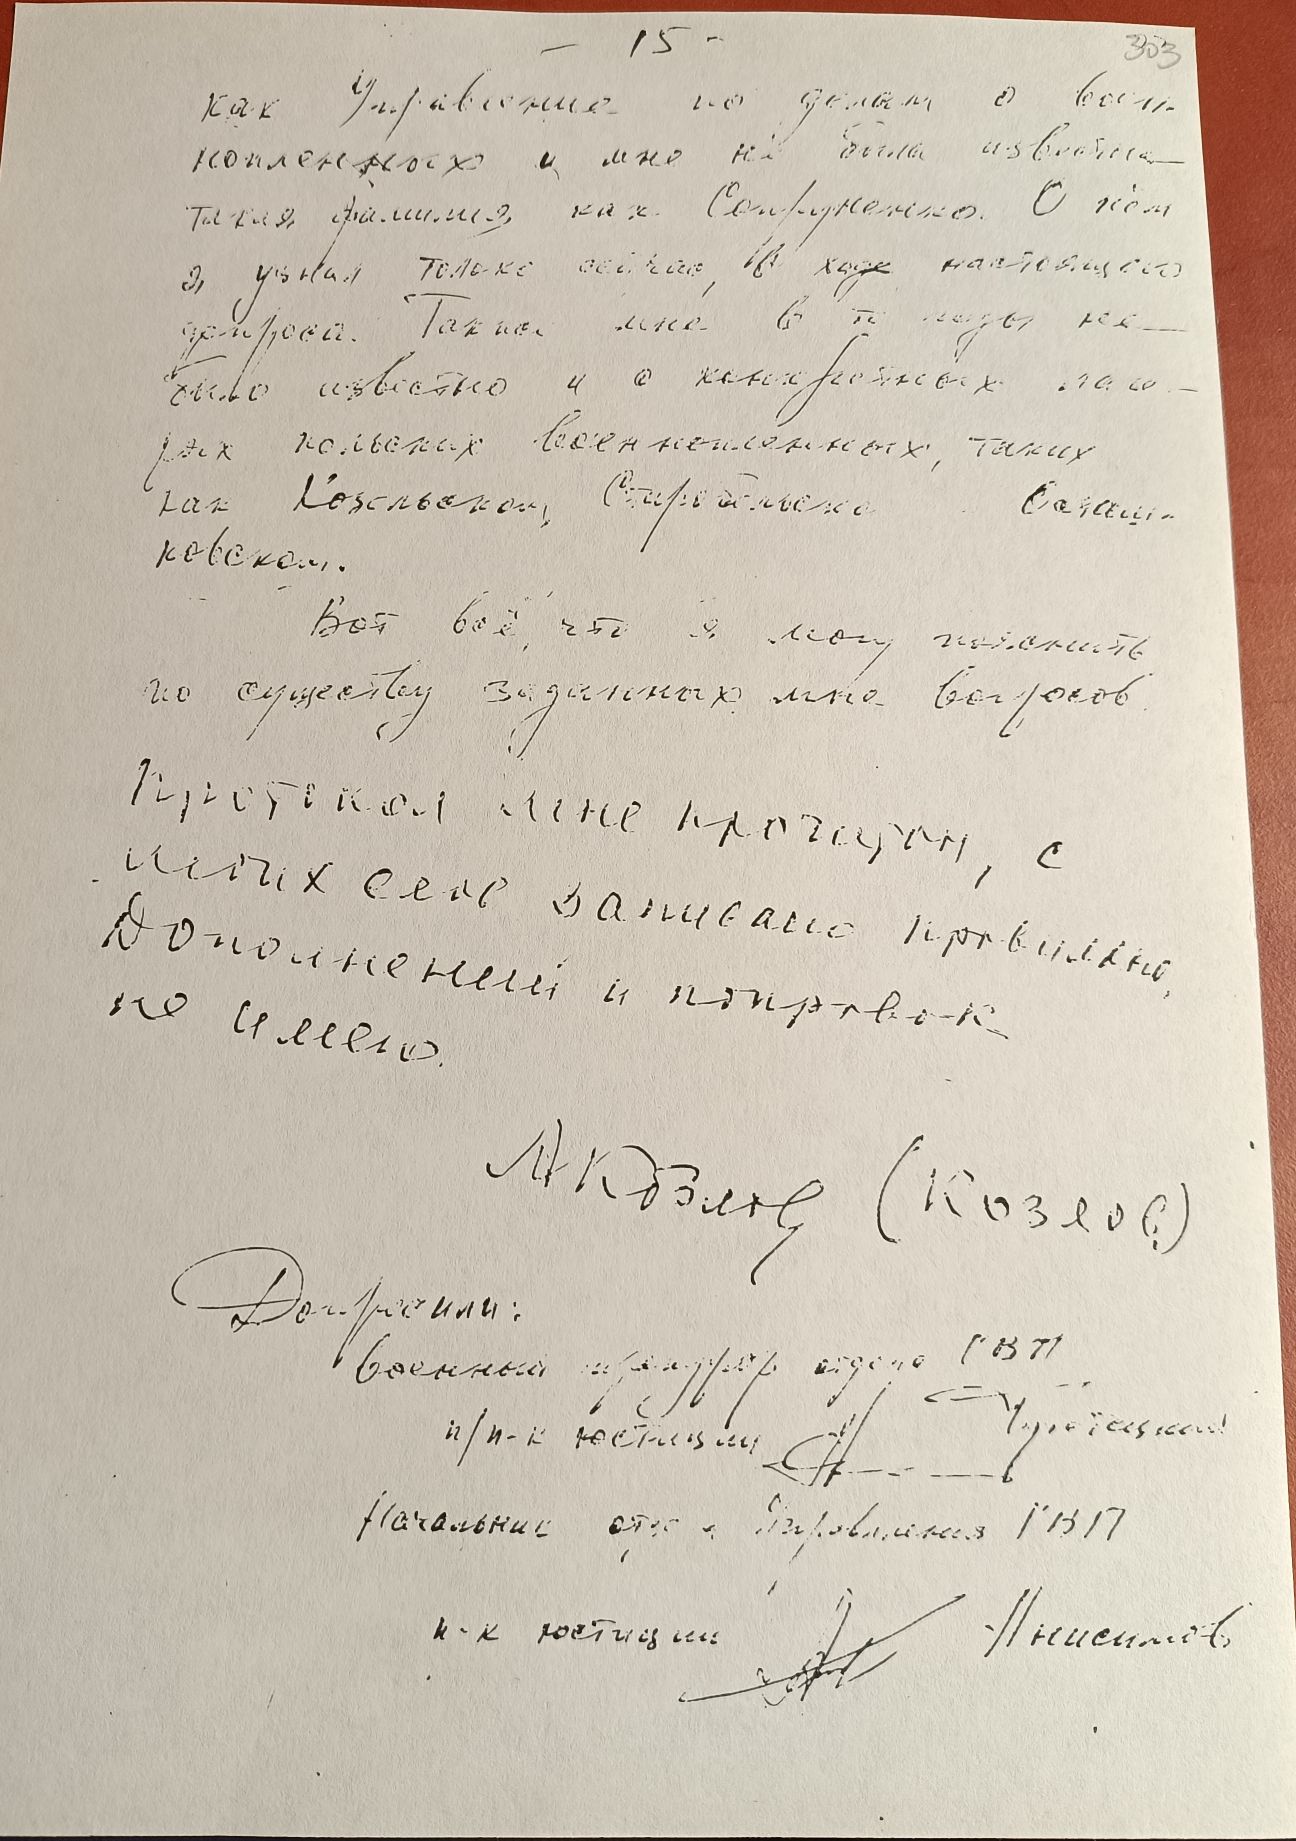 - 15 -
303
как Управление по делам о воен-
нопленных и мне не была известна
такая фамилия, как Сопруненко. О нём
я узнал только сейчас, в ходе настоящего
допроса. Также мне в те годы не
было известно и о конкретных лаге-
рях польских военнопленных, таких
как Козельском, Старобельском Осташ-
ковском.
Вот всё, что я могу пояснить
по существу заданных мне вопросов.
Протокол мне прочитан, с
моих слов записано правильно,
Дополнений и поправок
не имею.
МКозлов (Козлов)
Допросили:
Военный прокурор отдела ГВП
п/п-к юстиции
Начальник отдела Управления ГВП
п-к юстиции Анисимов